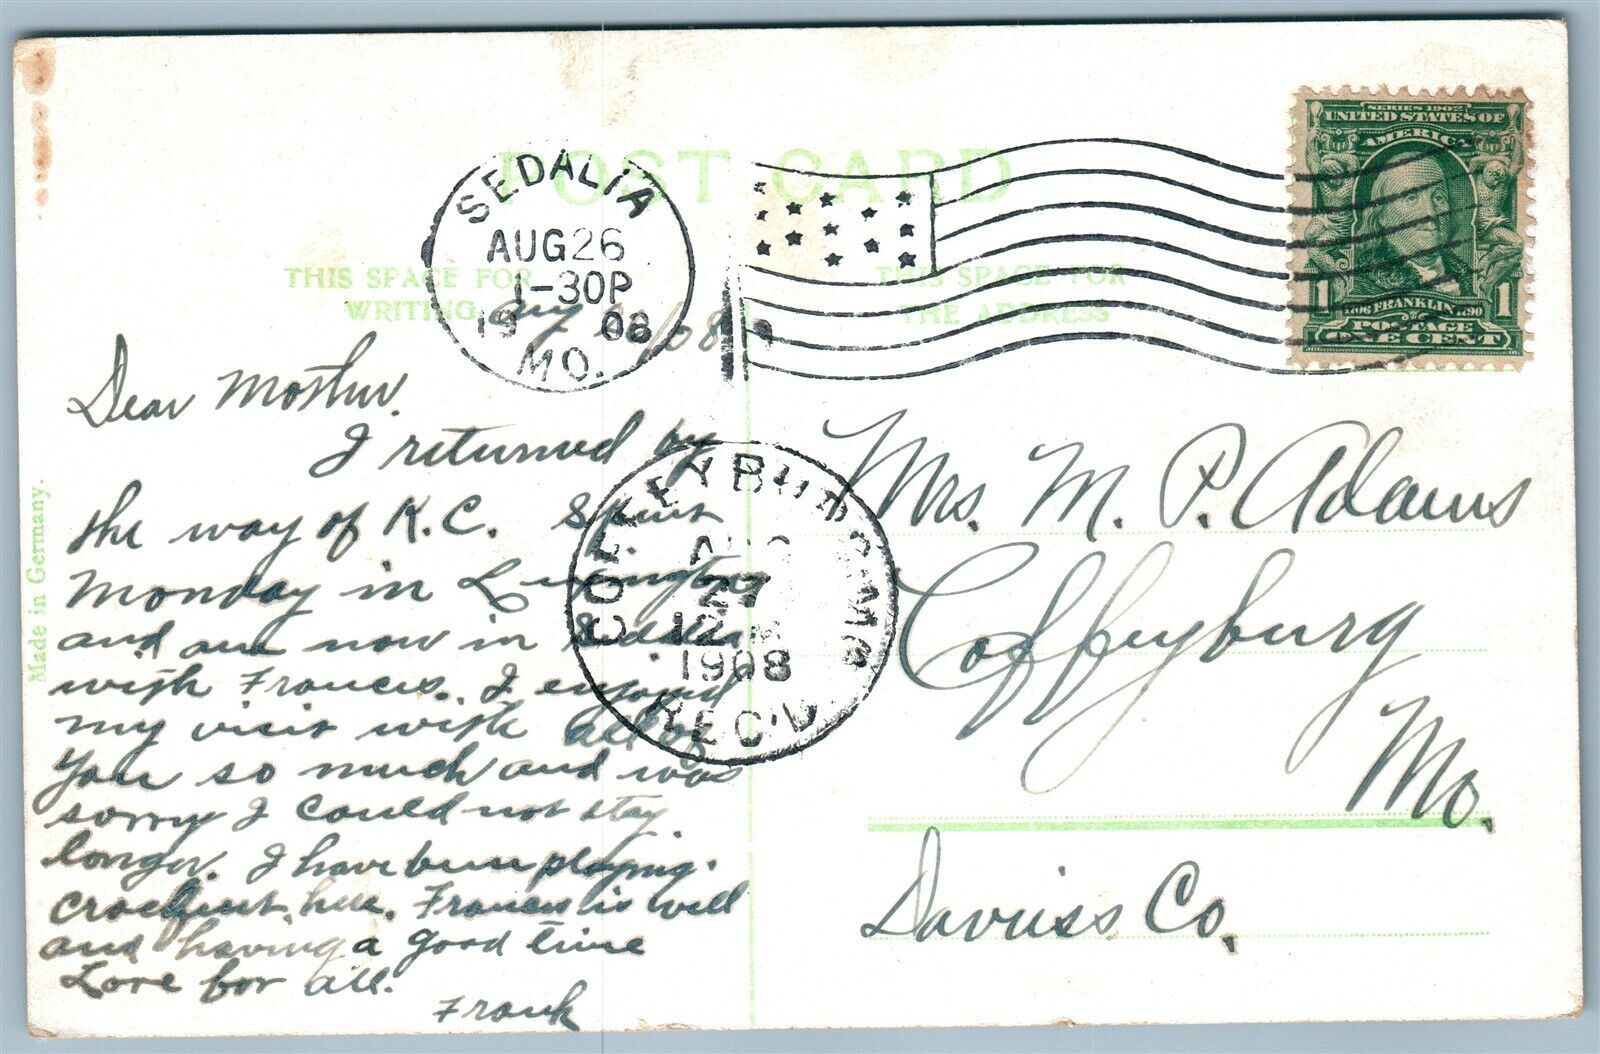 POST CARD
THIS SPACE FOR
WRITING
THIS SPACE FOR
THE ADDRESS
SEDALIA
AUG 26
1-30P
1908
MO.
SERIES 1902
UNITED STATES OF
AMERICA
1 FRANKLIN 1
POSTAGE
ONE CENT
Aug 26/08
Dear Mother.
I returned by
the way of K.C. Spent
Monday in Lexington
and am now in Sedalia
with Frances. I enjoyed
my visit with all of
you so much and was
sorry I could not stay
longer. I have been playing
croequet here. Frances is well
and having a good time
Love for all.
Frank
COFFEYBURG MO
AUG
27
12 M
1908
REC'D
Mrs. M. P. Adams
Coffeyburg
Mo.
Daviess Co.
Made in Germany.